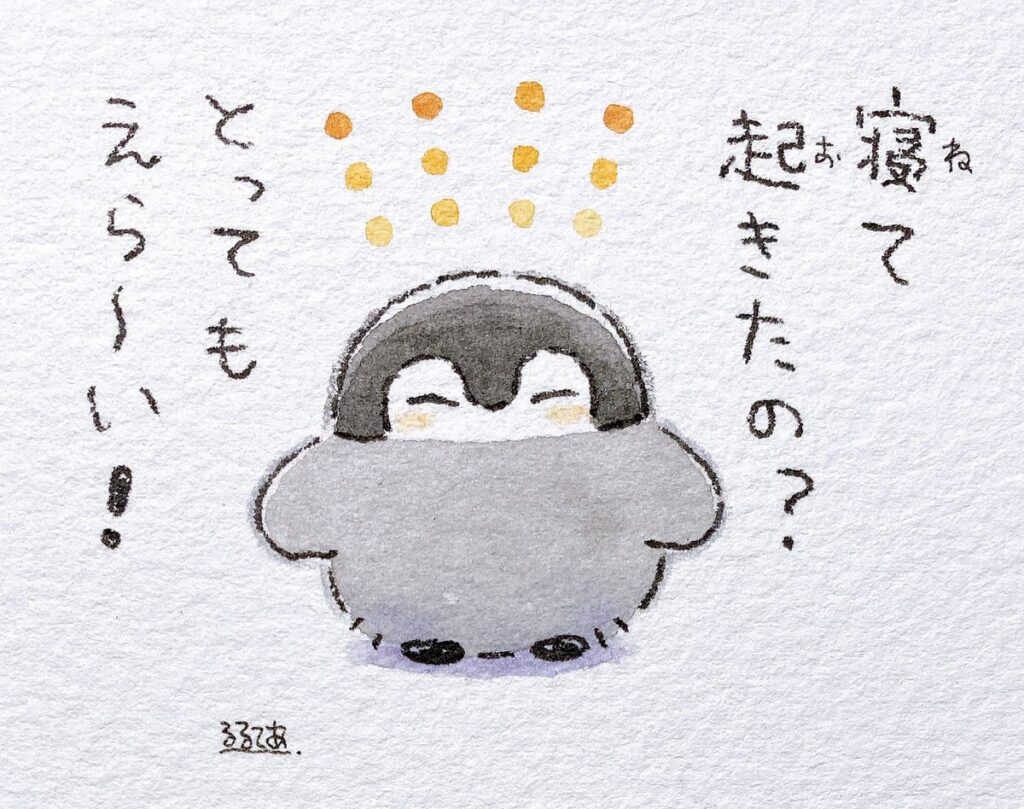 寝て
ね
起きたの?
お
とっても
えら〜い!
るるてあ.